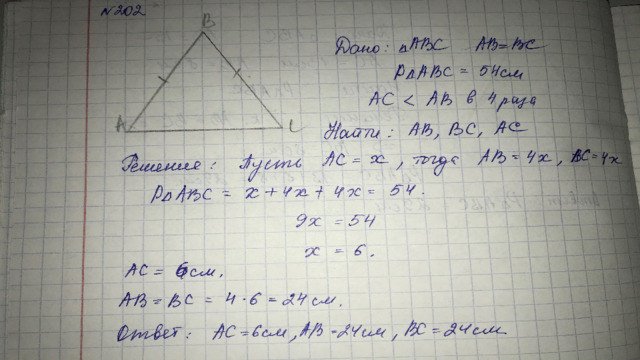 №202
B
A
C
Дано: △ABC AB=BC
P△ABC = 54см
AC < AB в 4 раза
Найти: AB, BC, AC
Решение: Пусть AC = x, тогда AB=4x, BC=4x
P△ABC = x+4x+4x = 54.
9x = 54
x = 6.
AC = 6см.
AB = BC = 4·6 = 24см.
Ответ: AC=6см, AB=24см, BC=24см